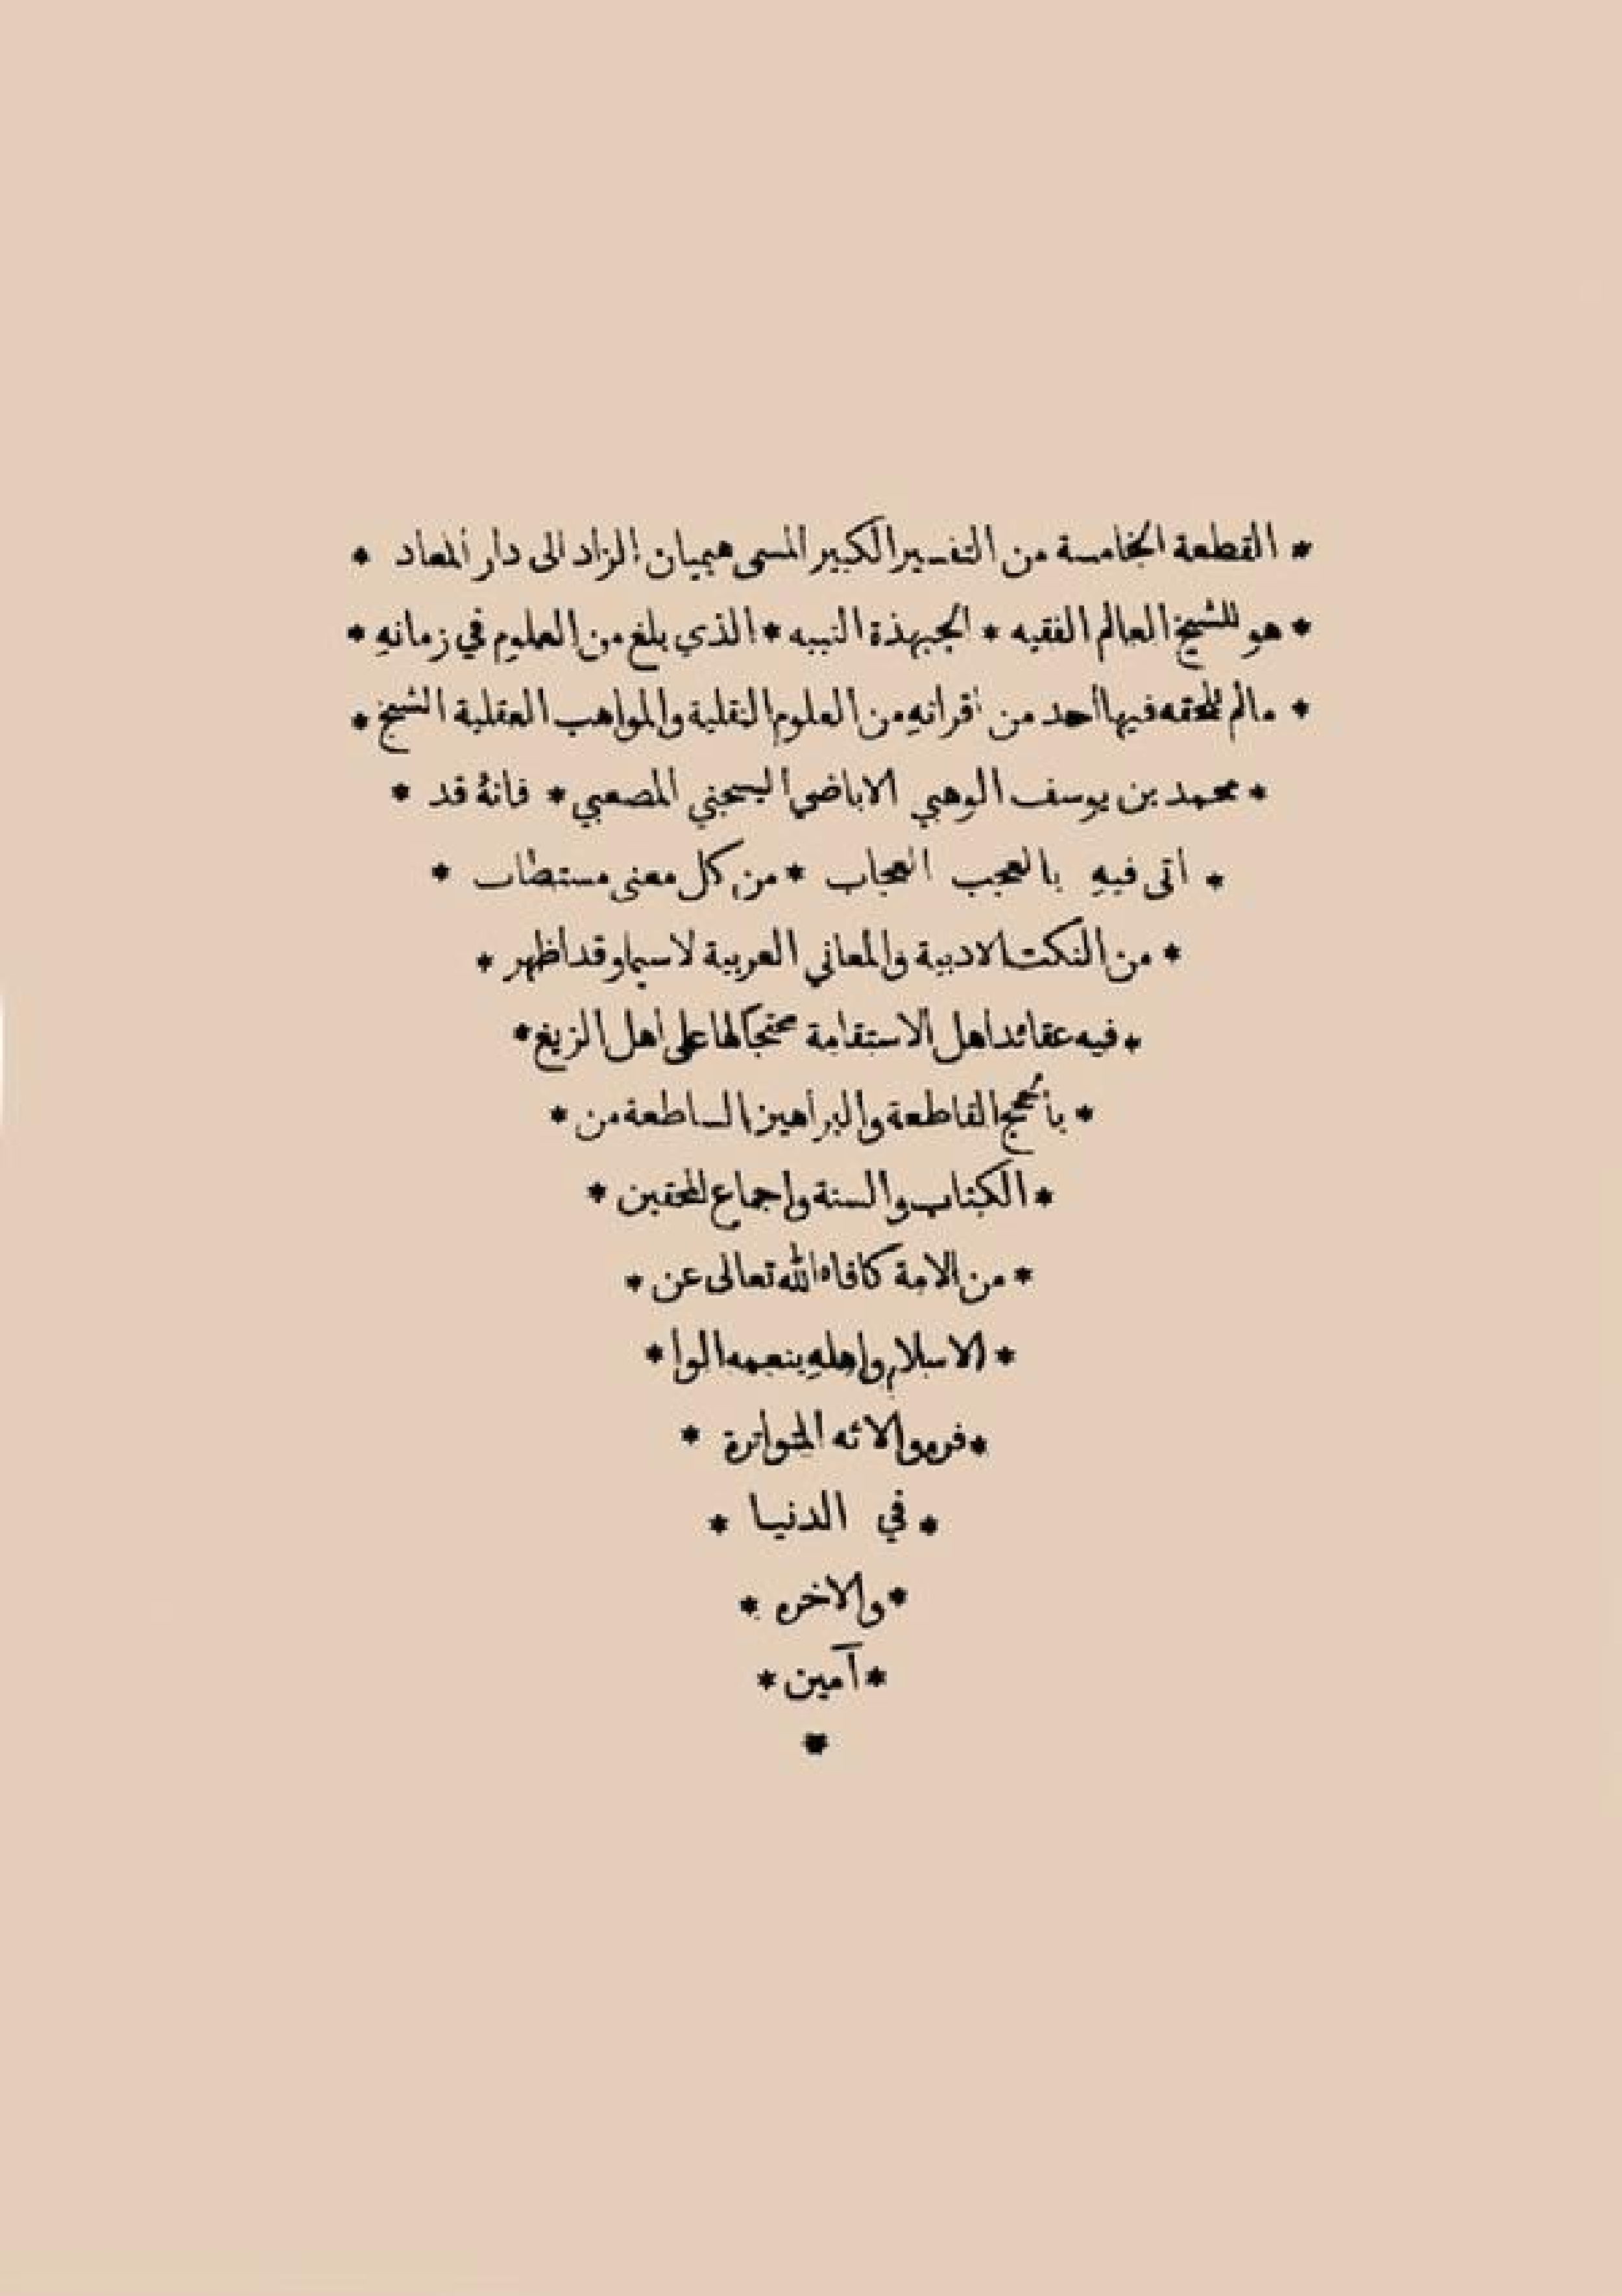 * القطعة الخامسة من التفسير الكبير المسمى هيميان الزاد الى دار المعاد *
* هو للشيخ العالم الفقيه * الجبهذة النبيه * الذي بلغ من العلوم في زمانهِ *
* مالم يلحقه فيها أحد من اقرانهِ من العلوم النقلية والمواهب العقلية الشيخ *
* محمد بن يوسف الوهبي الاباضي اليسجني المصعبي * فانهُ قد *
* أتى فيهِ بالعجب العجاب * من كل معنى مستطاب *
* من النكت الادبية والمعاني العربية لاسيما وقد اظهر *
* فيه عقائد اهل الاستقامة محتجاً لها على اهل الزيغ *
* بأحجج القاطعة والبراهين الساطعة من *
* الكتاب والسنة واجماع المحقين *
* من الامة كافاه الله تعالى عن *
* الاسلام واهلهِ بنعمه الوا *
* فره والائه المتواترة *
* في الدنيا *
* والاخره *
* آمين *
*